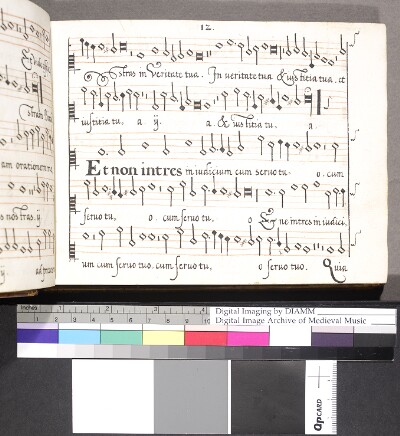 12.
stras in Veritate tua. In veritate tua & iustitia tua. et
iustitia tu, a ij. a. & ius titia tu. a.
am orationem
Et non intres in iudicium cum seruo tu- o. cum
nostras. ij
seruo tu, o. cum seruo tu, o & ne intres in iudici,
um cum seruo tuo. cum seruo tu, o seruo tuo. Quia
Inches 1 2 3 4
1 2 5 6 7 8 9 10
Digital Imaging by DIAMM
Digital Image Archive of Medieval Music
QPCARD